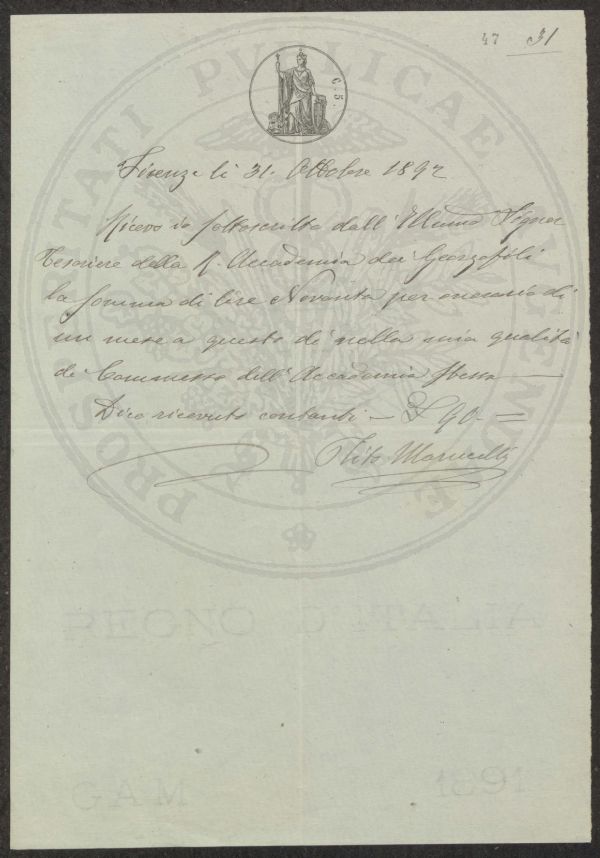 47 31
C. 5.
PROSPERITATI PUBLICAE AUGENDAE
Firenze li 31. Ottobre 1892
Ricevo io sottoscritto dall' Illmo Signor
Tesoriere della R. Accademia dei Georgofili
la somma di lire Novanta per onorario di
un mese a questo dì nella mia qualità
di Commesso dell' Accademia stessa —
Dico ricevuto contanti — £ 90 — =
Marucelli
REGNO D'ITALIA
GAM 1891